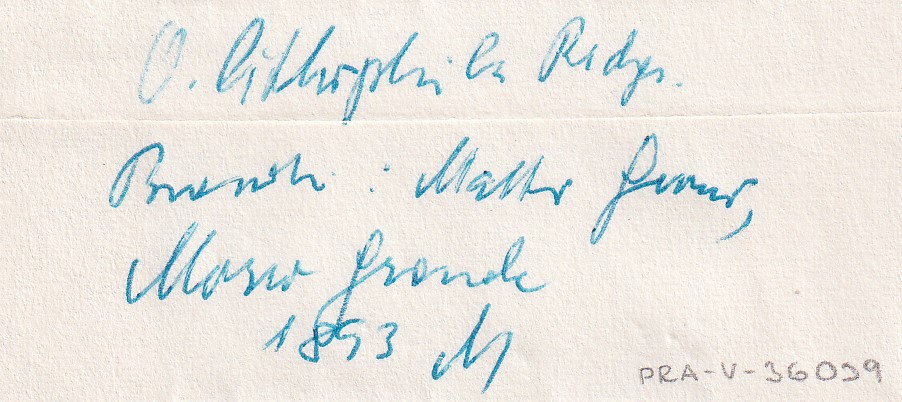 O. lithophila Redgr.
Brasil : Matto Grosso,
Morro Grande
1893 M
PRA-V-36039